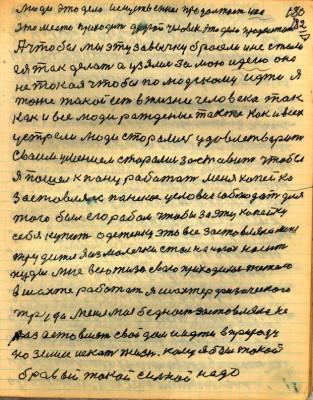 люди это дело искуственно продолжается на 180
это место приходит другой человек это дело продолжает 182
А чтобы мы эту завычку бросели и не стали
её так делать а узями за мою идею она
не такая чтобы по людскому идти я
тоже такой есть в жизни человека так
как и все люди рождение также как и всех
устрели люди старались удовлетворить
своим умением старались заставить чтобы
я пошел к пану работат меня копейка
заставляла панские условие обходят для
того был его рабом чтобы за эту копейку
себя купит одетенку это все заставляло меня
трудится я из молочка стал на ногах носит
нужды мне всю жизнь свою приходилось тяжело
в шахте работат я шахтер физического
труда меня моя бедност заставляла не
раз оставлят свой дом и идти в природу
по земи искат жизн. кому я был такой
бравый такой силной надо